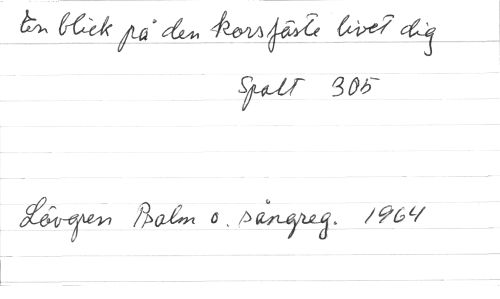 En blick på den korsfäste livet dig
Spalt 305
Lövgren Psalm o. sångreg. 1964